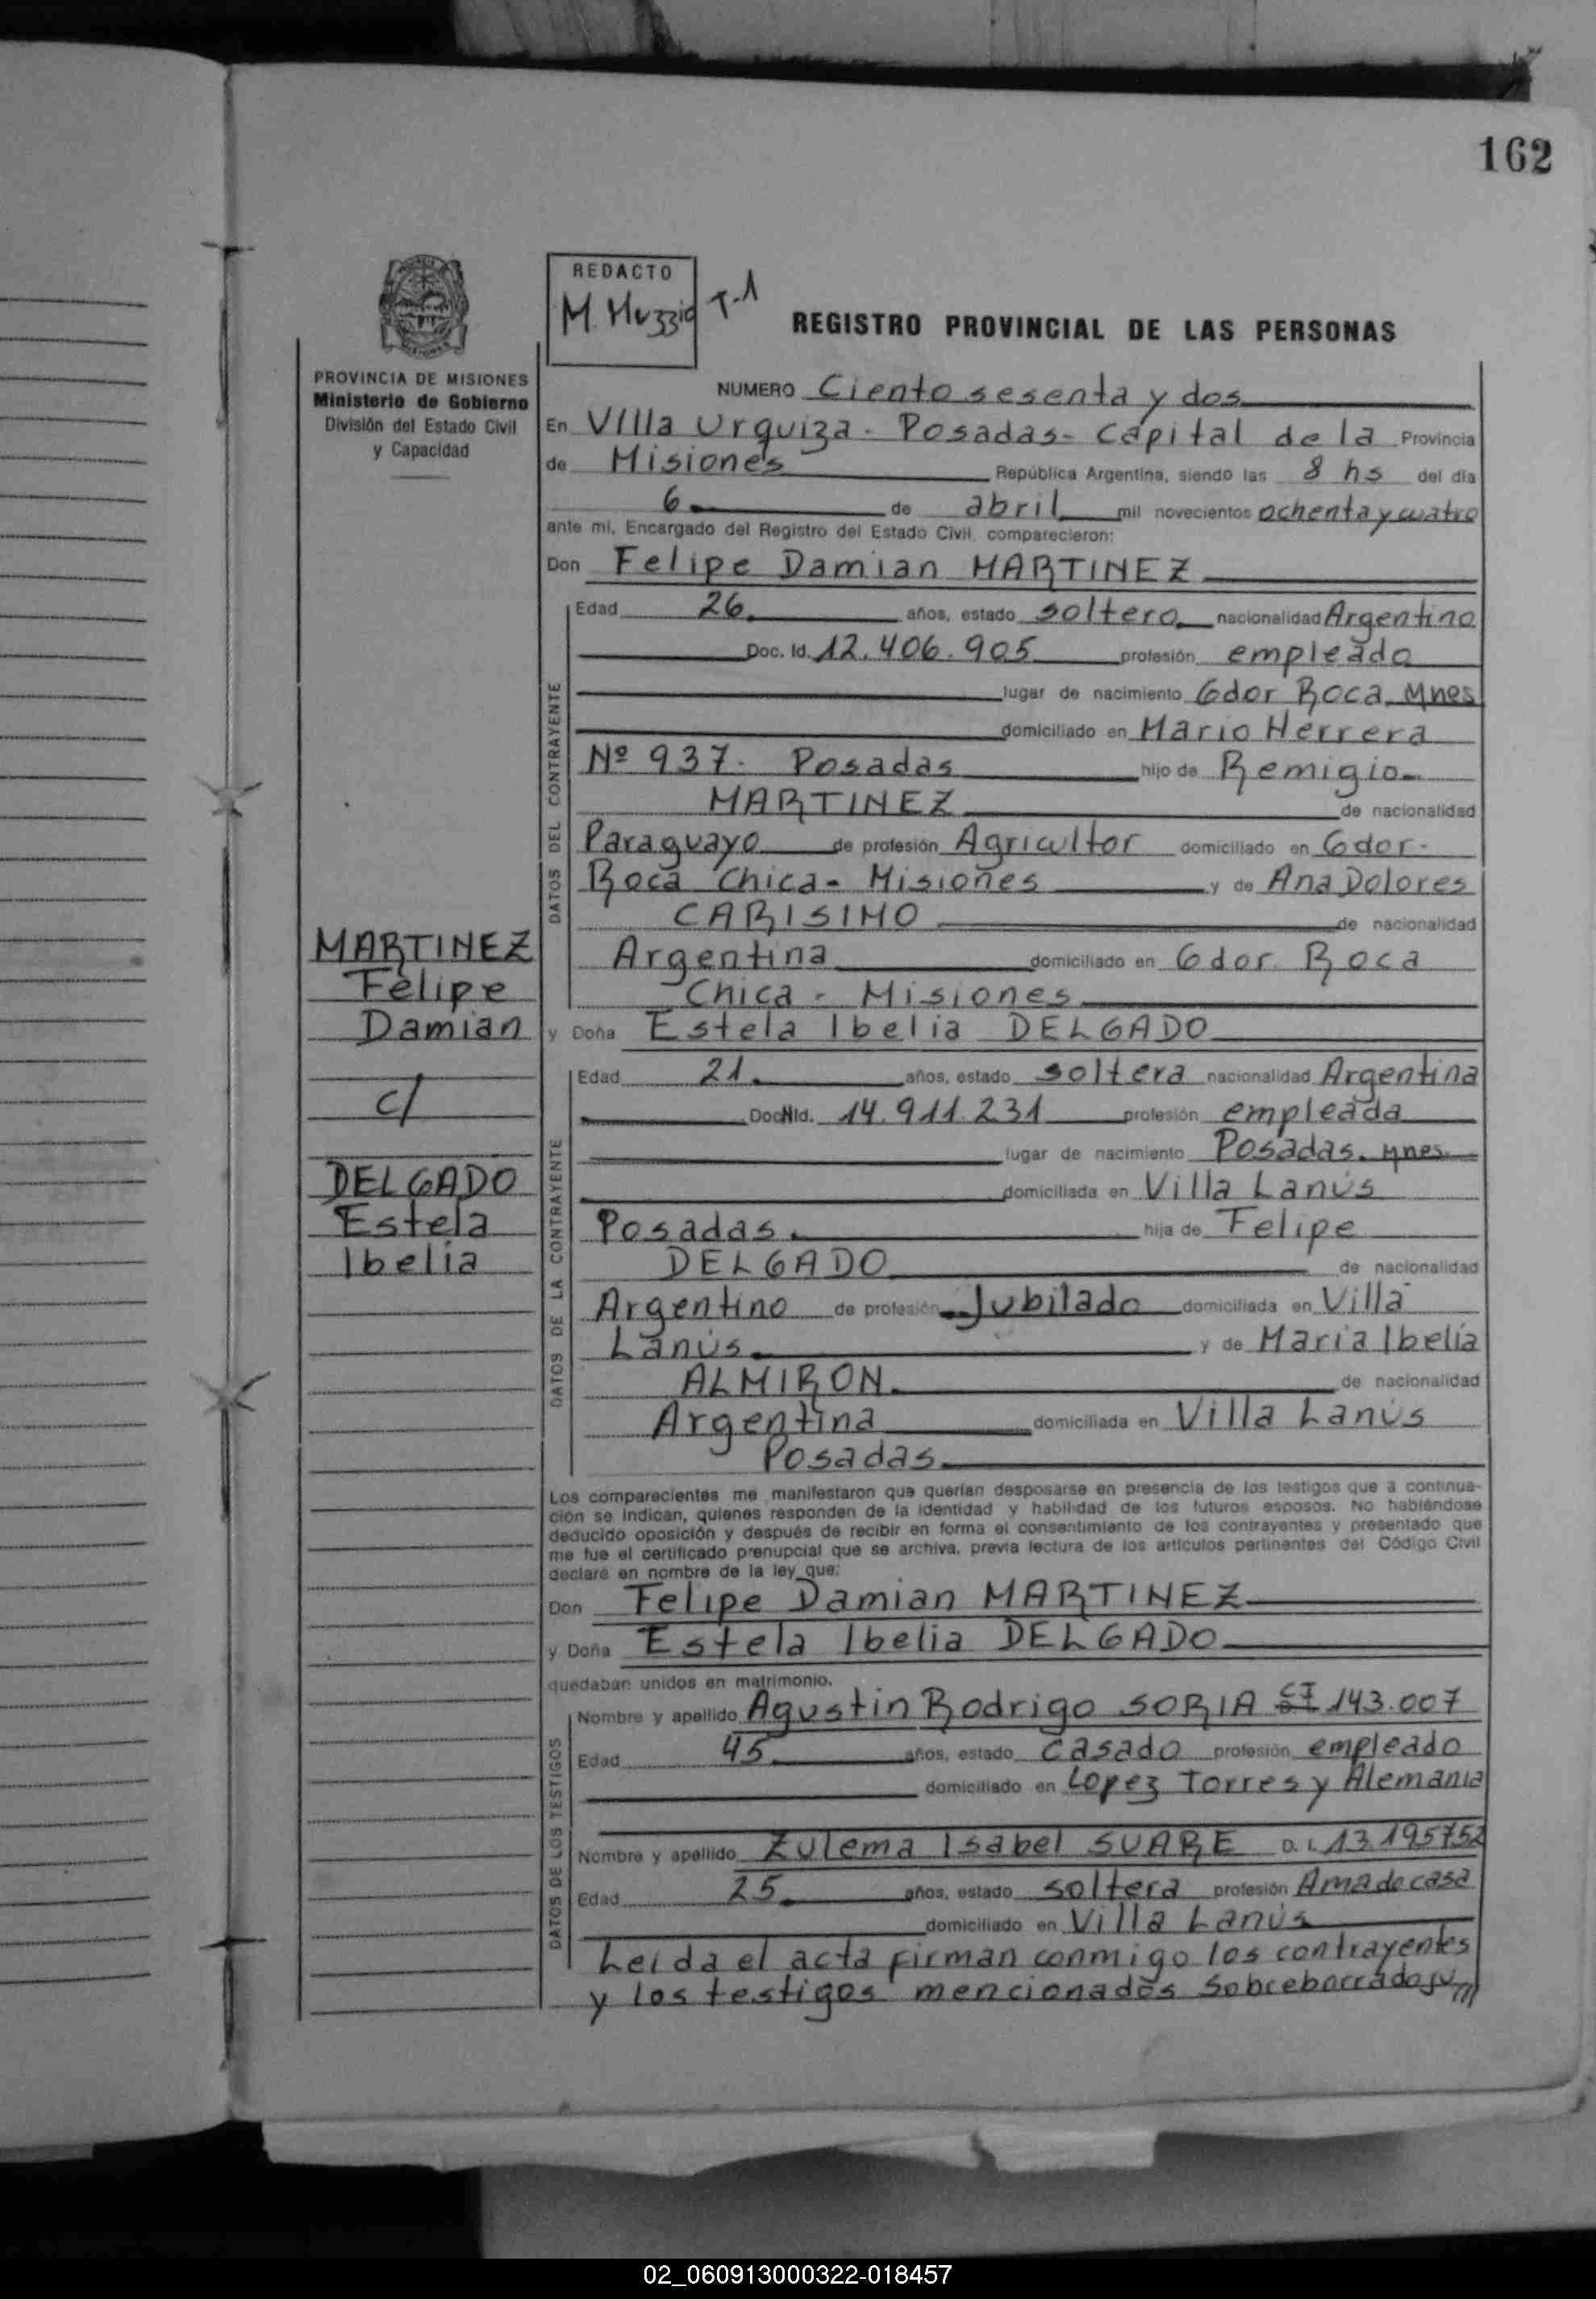 162
REDACTO
M. Muzzio T-1
REGISTRO PROVINCIAL DE LAS PERSONAS
PROVINCIA DE MISIONES
Ministerio de Gobierno
División del Estado Civil
y Capacidad
NUMERO Ciento sesenta y dos
En Villa Urquiza - Posadas - Capital de la Provincia
de Misiones República Argentina, siendo las 8 hs del día
6 de abril mil novecientos ochenta y cuatro
ante mí, Encargado del Registro del Estado Civil, comparecieron:
Don Felipe Damian MARTINEZ
DATOS DEL CONTRAYENTE
Edad 26 años, estado soltero nacionalidad Argentino
Doc. Id. 12.406.905 profesión empleado
lugar de nacimiento Gdor Roca Mnes
domiciliado en Mario Herrera
Nº 937. Posadas hijo de Remigio
MARTINEZ de nacionalidad
Paraguayo de profesión Agricultor domiciliado en Gdor.
Roca Chica - Misiones y de Ana Dolores
CARISIMO de nacionalidad
Argentina domiciliado en Gdor. Roca
Chica - Misiones
MARTINEZ
Felipe
Damian
c/
DELGADO
Estela
Ibelia
y Doña Estela Ibelia DELGADO
DATOS DE LA CONTRAYENTE
Edad 21. años, estado soltera nacionalidad Argentina
Doc. Id. 14.911.231 profesión empleada
lugar de nacimiento Posadas. Mnes.
domiciliada en Villa Lanús
Posadas. hija de Felipe
DELGADO de nacionalidad
Argentino de profesión Jubilado domiciliada en Villa
Lanús. y de Maria Ibelia
ALMIRON. de nacionalidad
Argentina domiciliada en Villa Lanús
Posadas.
Los comparecientes me manifestaron que querían desposarse en presencia de los testigos que a continua-
ción se indican, quienes responden de la identidad y habilidad de los futuros esposos. No habiéndose
deducido oposición y después de recibir en forma el consentimiento de los contrayentes y presentado que
me fue el certificado prenupcial que se archiva, previa lectura de los artículos pertinentes del Código Civil
declaré en nombre de la ley que:
Don Felipe Damian MARTINEZ
y Doña Estela Ibelia DELGADO
quedaban unidos en matrimonio.
DATOS DE LOS TESTIGOS
Nombre y apellido Agustin Rodrigo SORIA CI 143.007
Edad 45 años, estado casado profesión empleado
domiciliado en Lopez Torres y Alemania
Nombre y apellido Zulema Isabel SUARE D.I. 13.195752
Edad 25. años, estado soltera profesión Ama de casa
domiciliado en Villa Lanús
Leida el acta firman conmigo los contrayentes
y los testigos mencionados Sobreborrado
02_060913000322-018457